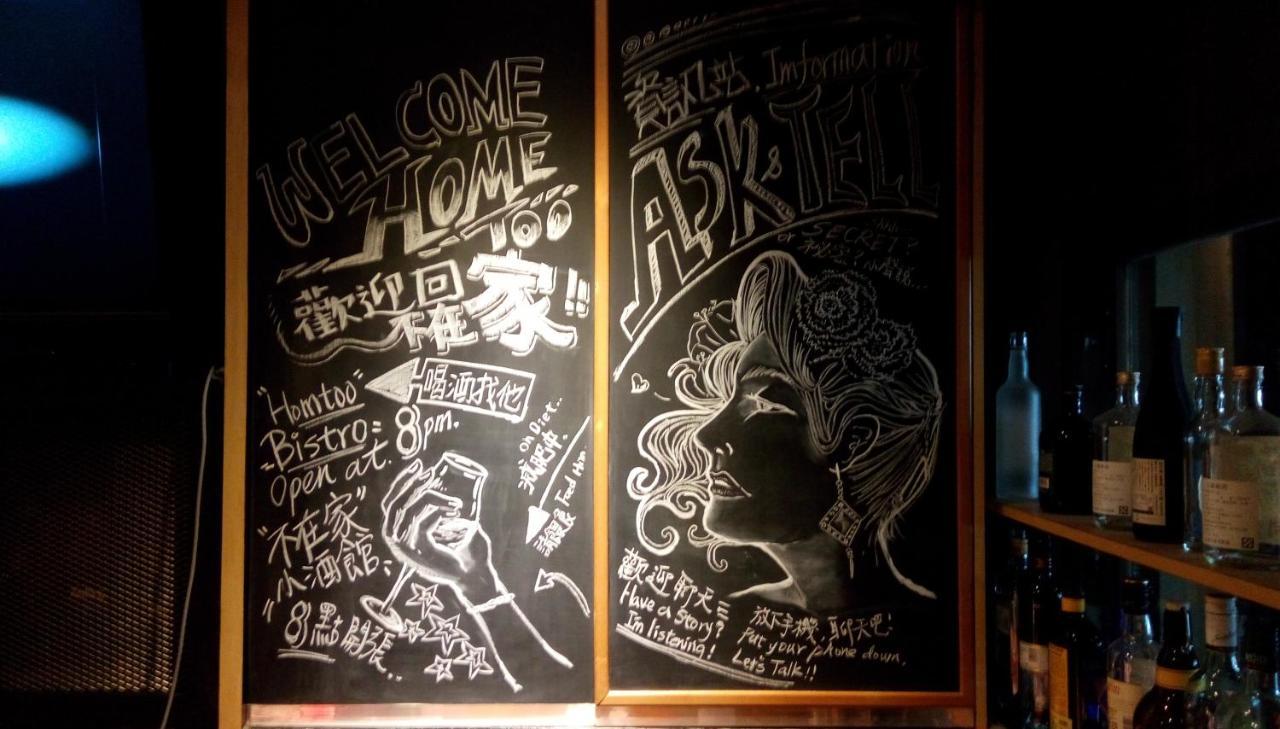 WELCOME
HOME
TOO
歡迎回不在家!!
喝酒找他
"Homtoo"
"Bistro"
Open at 8pm.
"不在家"
"小酒館"
8點開張...
on Diet..
減肥中.
Feed Him
請餵食
資訊站. Imformation
ASK & TELL
or SECRET?
歡迎聊天
Have a Story?
I'm listening!
放下手機,聊天吧!
Put your phone down,
Let's Talk!!